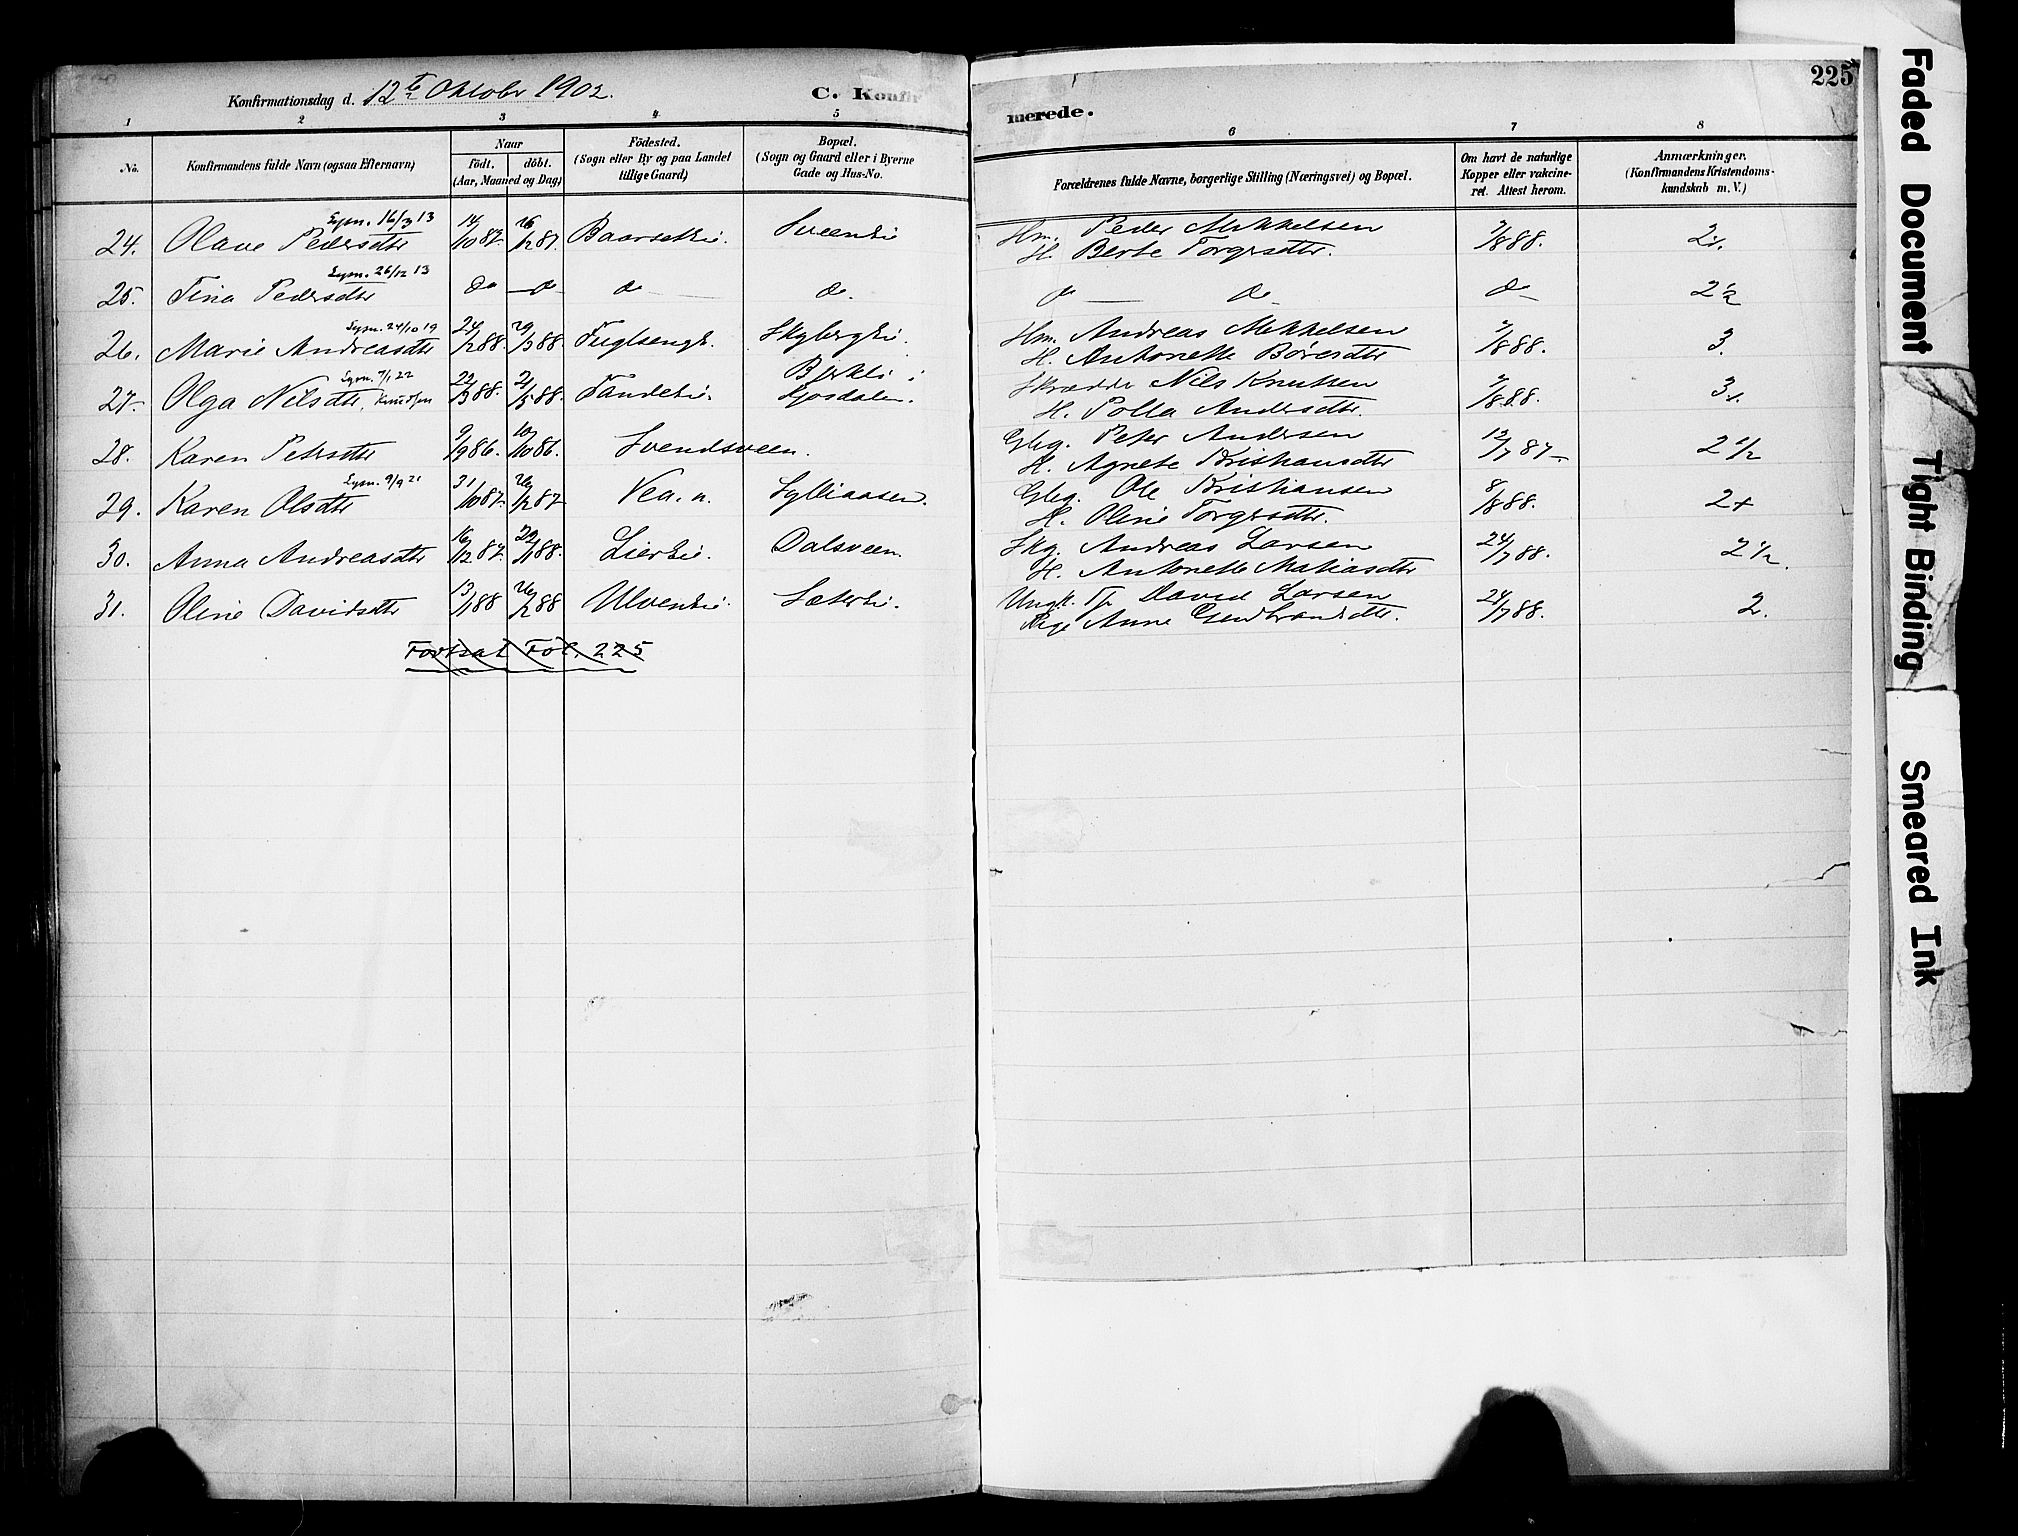 225
Konfirmationsdag d. 12te Oktobr 1902.
C. Konfir
merede.
1 2 3 4 5 6 7 8
No.
Konfirmandens fulde Navn (ogsaa Efternavn)
Naar
födt. döbt.
(Aar, Maaned og Dag)
Födested.
(Sogn eller By og paa Landet
tillige Gaard)
Bopæl.
(Sogn og Gaard eller i Byerne
Gade og Hus-No.
Forældrenes fulde Navne, borgerlige Stilling (Næringsvei) og Bopæl.
Om havt de naturlige
Kopper eller vakcine-
ret. Attest herom.
Anmærkninger.
(Konfirmandens Kristendoms-
kundskab m. V.)
16/3 13
24. Olave Pedersdtr 14/10 87. 26/12 87. Sveenei Hm. Peder Mikkelsen 7/8 88. 2
H. Berte Torgersdtr.
26/12 13
25. Tina Pedersdtr do do do do. do do do 2 1/2
24/10 19
26. Marie Andreasdtr 24/2 88. 29/3 88. Fuglseng. Skybergei. Hm. Andreas Mikkelsen 7/8 88. 3.
H. Antonette Børesdtr
7/1 22
27. Olga Nilsdtr, Knudsen 22/3 88. 21/5 88. Tandeei. Bjerkli i Skrædder Nils Knutsen 7/8 88. 3
Gjosdalen. H. Polla Andersdtr.
28. Karen Petersdtr 9/9 86. 10/10 86. Svendsveen. Gbg. Peter Andersen 12/7 87 2 1/2
H. Agnete Kristiansdtr
9/9 21
29. Karen Olsdtr 31/10 87. 26/12 87 Vea. n. Sylliaasen. Gbg. Ole Kristiansen 8/8 88. 2+
H. Oline Torgersdtr.
30. Anna Andreasdtr 16/12 87. 22/1 88. Lierei. Dalsveen Skg. Andreas Larsen 24/7 88. 2 1/2.
H. Antonette Matiasdtr
31. Oline Davidsdtr 13/1 88 26/2 88 Ulvenei. Sæterei. Ungk. Tj. David Larsen 24/7 88. 2.
Pige Anne Gundbrandsdtr.
Fortsat Fol. 225
Faded Document
Tight Binding
Smeared Ink